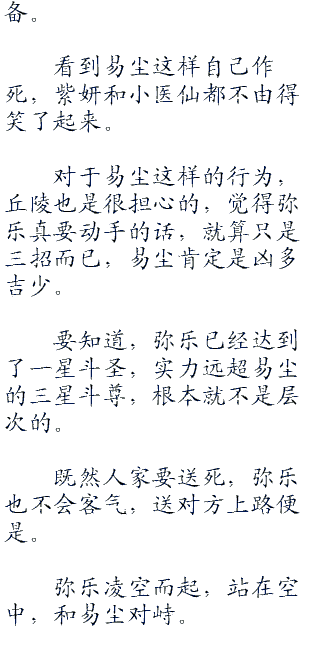 备。
看到易尘这样自己作
死，紫妍和小医仙都不由得
笑了起来。
对于易尘这样的行为，
丘陵也是很担心的，觉得弥
乐真要动手的话，就算只是
三招而已，易尘肯定是凶多
吉少。
要知道，弥乐已经达到
了一星斗圣，实力远超易尘
的三星斗尊，根本就不是层
次的。
既然人家要送死，弥乐
也不会客气，送对方上路便
是。
弥乐凌空而起，站在空
中，和易尘对峙。